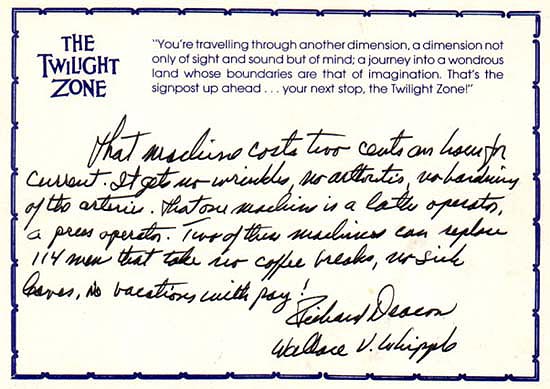 THE
TWILIGHT
ZONE
"You're travelling through another dimension, a dimension not
only of sight and sound but of mind; a journey into a wondrous
land whose boundaries are that of imagination. That's the
signpost up ahead . . . your next stop, the Twilight Zone!"
That machine costs two cents an hour for
current. It gets no wrinkles, no arthritis, no hardening
of the arteries. That one machine is a lathe operator,
a press operator. Two of these machines can replace
114 men that take no coffee breaks, no sick
leaves, no vacations with pay!
Richard Deacon
Wallace V. Whipple